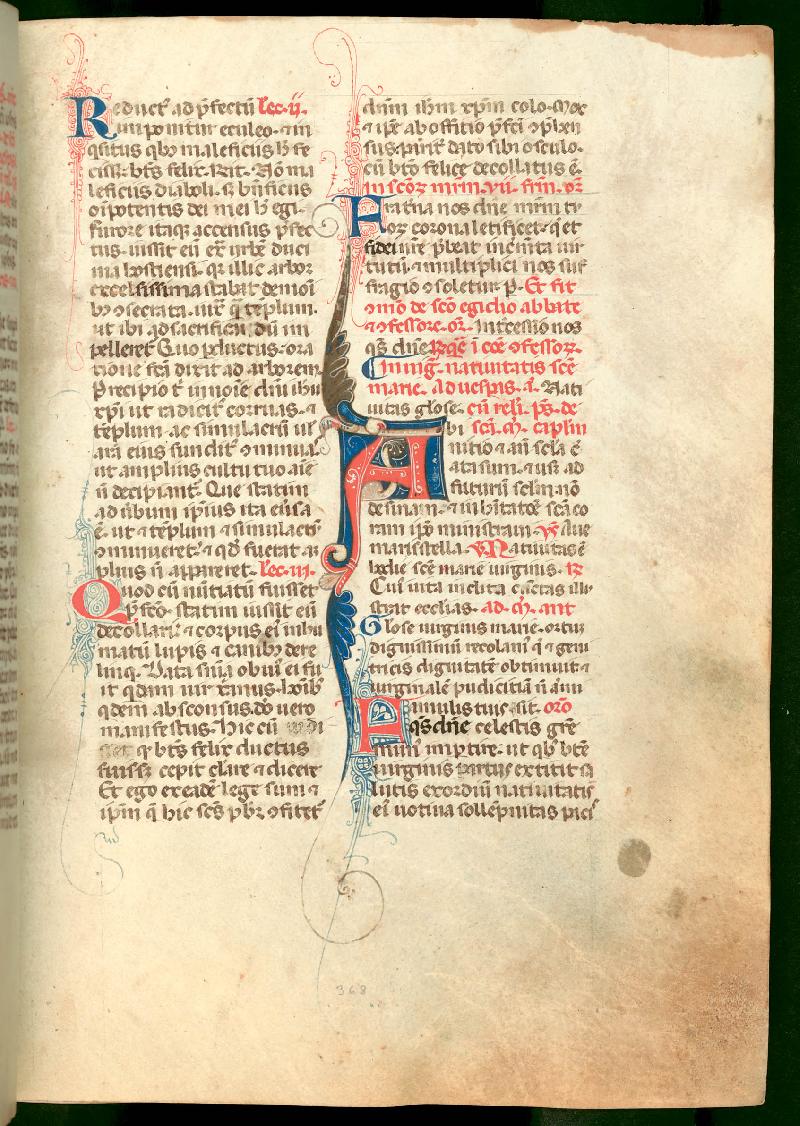 Reduct' ad p̄fectū lec. ij.
Rur imponitur eculeo. ⁊ in
q̄situs qbꝫ maleficijs h̄ fe
cisset. bt̄s felix. Rn̄t. Nō ma
leficijs diaboli. sꝫ bn̄ficijs
oīpotentis dei mei h̄ egi.
furore itaqꝫ accensus p̄fec
tus. iussit eū ex̄ urbē duci
uia hostiensi. qr illic arbor
excelsissima stabat demoī
bꝫ ↄsecrata. iux̄ q̄ tēplum.
ut ibi ad sacrificiū dū im
pelleret᷑ Quo ꝑductus. ora
tione fcā dixit ad arborem
Precipio t̄ in noīe dn̄i ihū
xp̄i ut radicit᷑ corruas. ⁊
tēplum ac simulacrū ul'
arā eius fundit᷑ ⁊minuas
ut amplius cultu tuo aīe
n̄ decipiant᷑. Que statim
ad ūbum ipīus ita euſa
ē. ut ⁊ tēplum ⁊ simulacrū
ↄminueret᷑ ⁊ qd̄ fuerat ar
plius n̄ appareret. lec. iij.
Quod cū nūtiatū fuisset
p̄fcō. statim iussit eū
decollari. ⁊ corpus eī inhu
matū lupis ⁊ canibꝫ dere
linq. Data sn̄ia obuī ei fu
it qdam uir xānus. hoībꝫ
qdem absconsus. dō uero
manifestus. Hic cū
q bt̄s felix ductus
fuissꝫ cepit clāre ⁊ dicere
Et ego ex eadē lege sum ⁊
ip̄m q̄ hic scs̄ pb̄r ↄfitet᷑
dn̄m ihm̄ xp̄m colo. Mox
⁊ ip̄e ab offitio p̄fci ↄp̄hen
sus. parit᷑ dato sibi osculo.
cū bt̄o felice decollatus ē.
In scōꝝ mr̄m. xij. frm̄. or̄
Fraterna nos dn̄e mr̄m ti
oꝝ corona letificet. q̄ et
fidei nr̄e p̄beat incm̄ta uir
tutū. ⁊ multiplici nos suf
fragio ↄsoletur. P. Et fit
ↄmō de scō egidio abbate
⁊ ↄfessore. or̄. Intercessio nos
qs̄ dn̄e. Reqē ī cōē ↄfessoꝝ.
In uig. natiuitatis scē
marie. ad uesp̄as. a. Nati
uitas glose. cū reli. ps. de
bi scā. m̄. caplm
Ab initio ⁊ an̄ scla c̄
ata sum. ⁊ usqꝫ ad
futurū sclm. nō
desinam. ⁊ in h̄itatōe scā co
ram ip̄o ministraui. ym̄ Aue
maris stella. v̄. Natiuitas ē
hodie scē marie uirginis. ℞
Cui uita inclita cūctas illu
strat ecclīas. ad. m̄. ant
Glose uirginis marie. ortū
dignissimū recolam᷑ q̄ ⁊ geni
tricis dignitatē obtinuit ⁊
uirginalē pudicitiā n̄ amī
Famulis tuis. sit. orō
qs̄ dn̄e celestis grē
mun᷑ imp̄tire. ut qbꝫ btē
uirginis partus extitit sa
lutis exordiū natiuitatis
eī uotiua sollēpnitas paci᷑
368